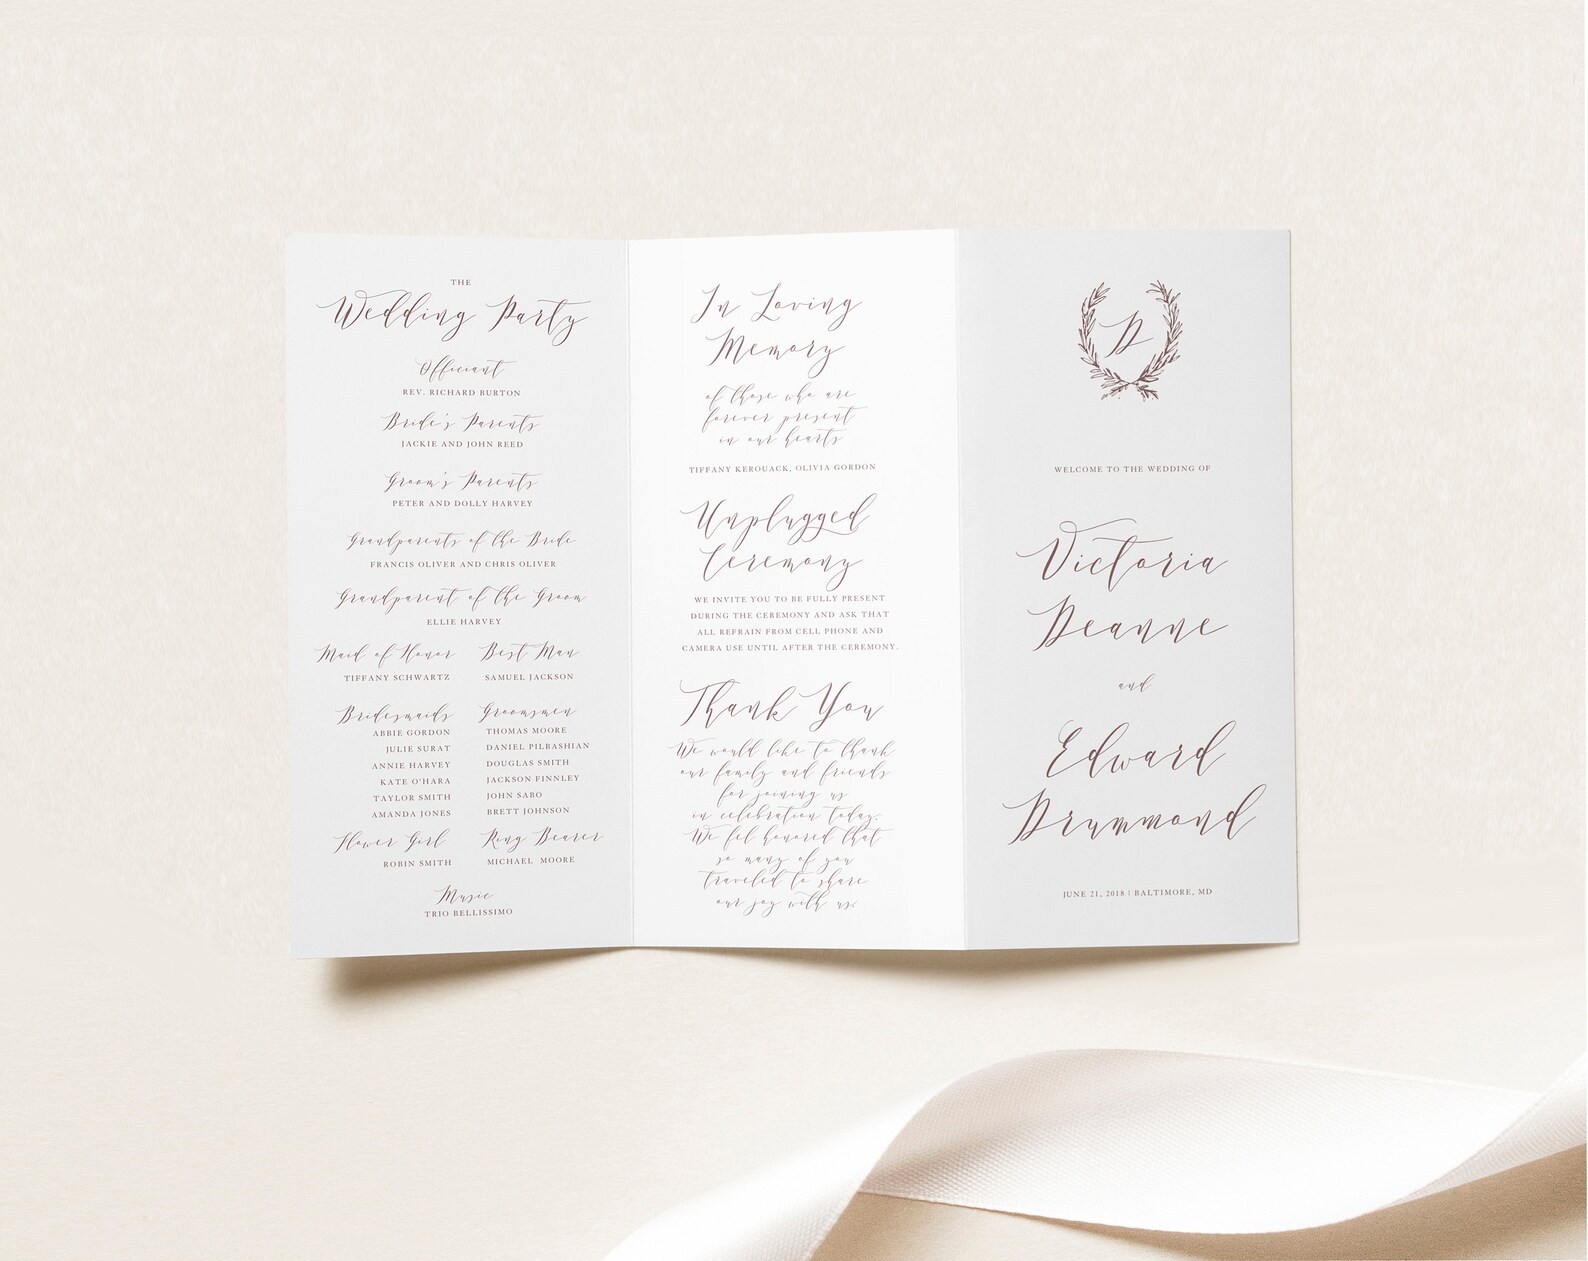 THE
Wedding Party
Officiant
REV. RICHARD BURTON
Bride's Parents
JACKIE AND JOHN REED
Groom's Parents
PETER AND DOLLY HARVEY
Grandparents of the Bride
FRANCIS OLIVER AND CHRIS OLIVER
Grandparent of the Groom
ELLIE HARVEY
Maid of Honor
TIFFANY SCHWARTZ
Best Man
SAMUEL JACKSON
Bridesmaids
ABBIE GORDON
JULIE SURAT
ANNIE HARVEY
KATE O'HARA
TAYLOR SMITH
AMANDA JONES
Groomsmen
THOMAS MOORE
DANIEL PILBASHIAN
DOUGLAS SMITH
JACKSON FINNLEY
JOHN SABO
BRETT JOHNSON
Flower Girl
ROBIN SMITH
Ring Bearer
MICHAEL MOORE
Music
TRIO BELLISSIMO
In Loving
Memory
of those who are
forever present
in our hearts
TIFFANY KEROUACK, OLIVIA GORDON
Unplugged
Ceremony
WE INVITE YOU TO BE FULLY PRESENT
DURING THE CEREMONY AND ASK THAT
ALL REFRAIN FROM CELL PHONE AND
CAMERA USE UNTIL AFTER THE CEREMONY.
Thank You
We would like to thank
our family and friends
for joining us
in celebration today.
We fel honored that
so many of you
traveled to share
our joy with us.
D
WELCOME TO THE WEDDING OF
Victoria
Deanne
and
Edward
Drummond
JUNE 21, 2018 | BALTIMORE, MD